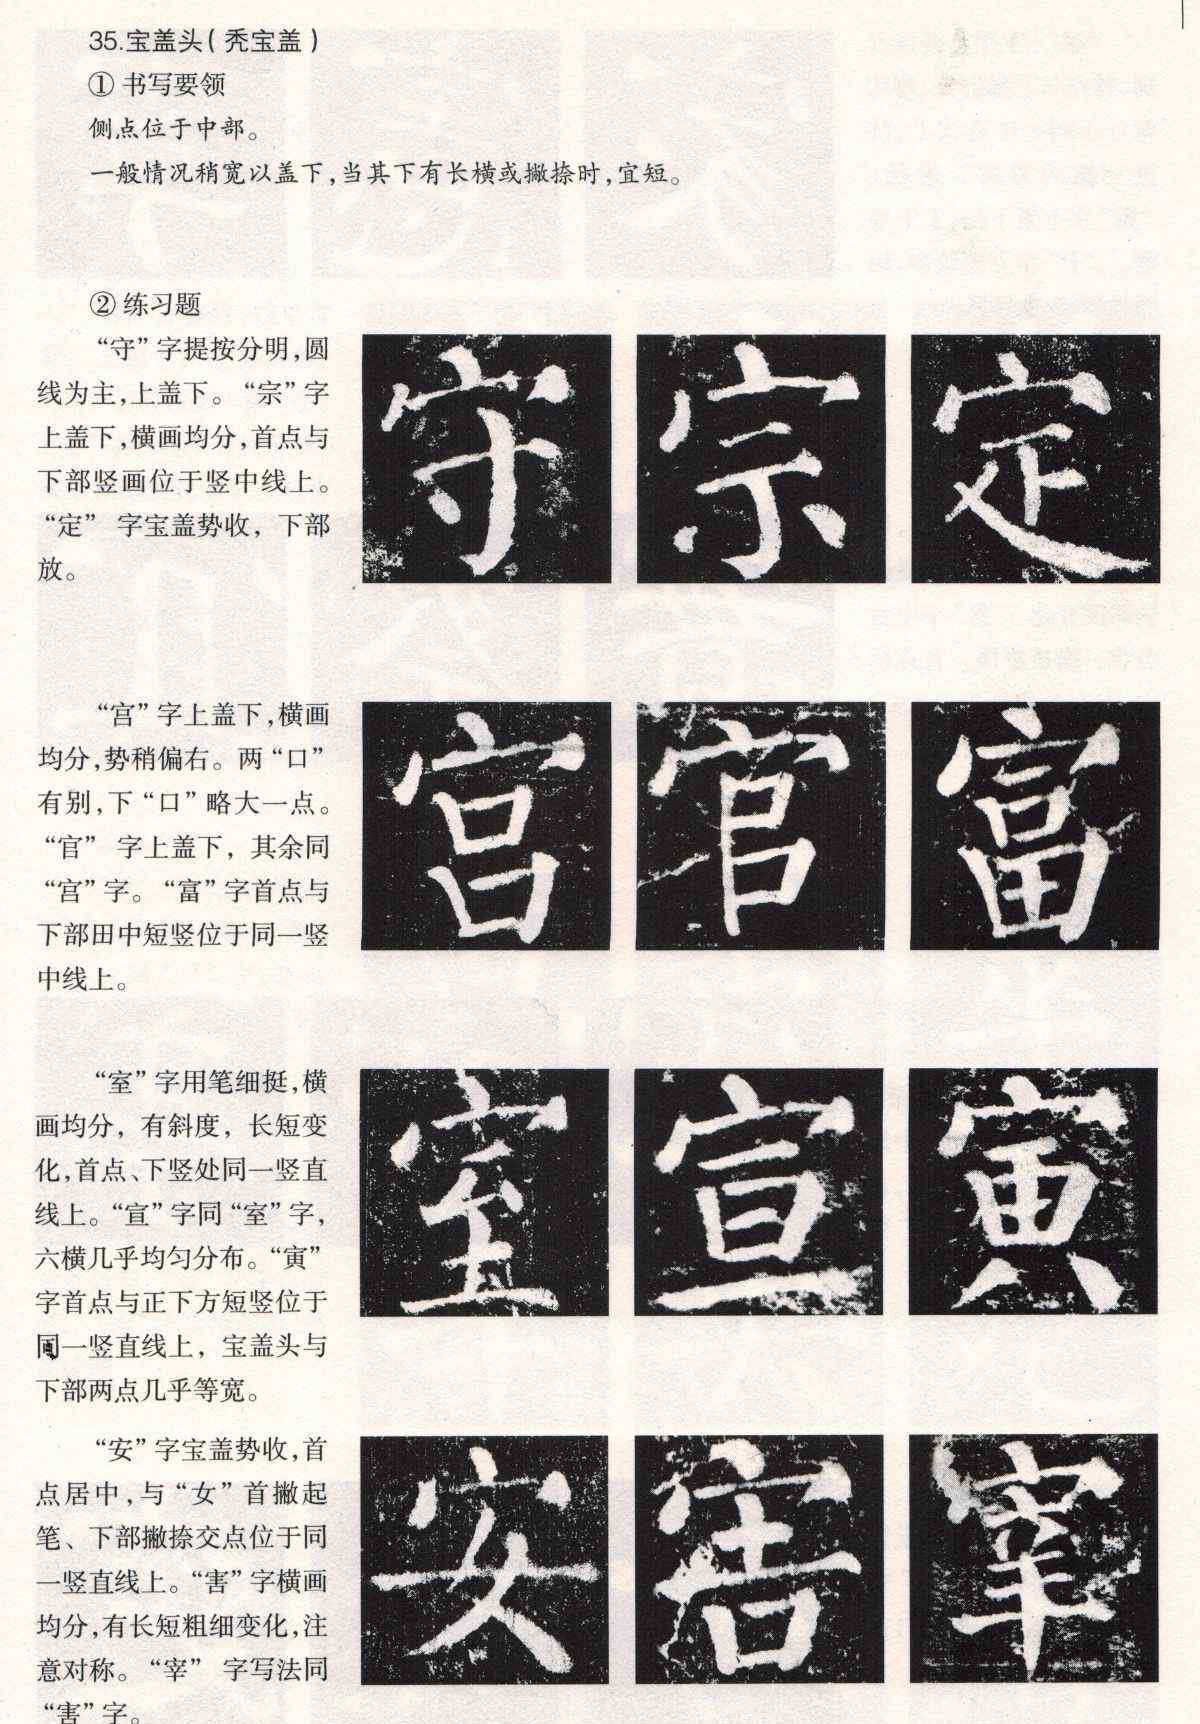 35.宝盖头(秃宝盖)
① 书写要领
侧点位于中部。
一般情况稍宽以盖下,当其下有长横或撇捺时,宜短。
② 练习题
“守”字提按分明,圆
线为主,上盖下。“宗”字
上盖下,横画均分,首点与
下部竖画位于竖中线上。
“定” 字宝盖势收, 下部
放。
守 宗 定
“宫”字上盖下,横画
均分,势稍偏右。两“口”
有别,下“口”略大一点。
“官” 字上盖下, 其余同
“宫”字。“富”字首点与
下部田中短竖位于同一竖
中线上。
宫 官 富
“室”字用笔细挺,横
画均分, 有斜度, 长短变
化,首点、下竖处同一竖直
线上。“宣”字同“室”字,
六横几乎均匀分布。“寅”
字首点与正下方短竖位于
同一竖直线上, 宝盖头与
下部两点几乎等宽。
室 宣 寅
“安”字宝盖势收,首
点居中,与“女”首撇起
笔、下部撇捺交点位于同
一竖直线上。“害”字横画
均分,有长短粗细变化,注
意对称。“宰” 字写法同
“害”字。
安 害 宰